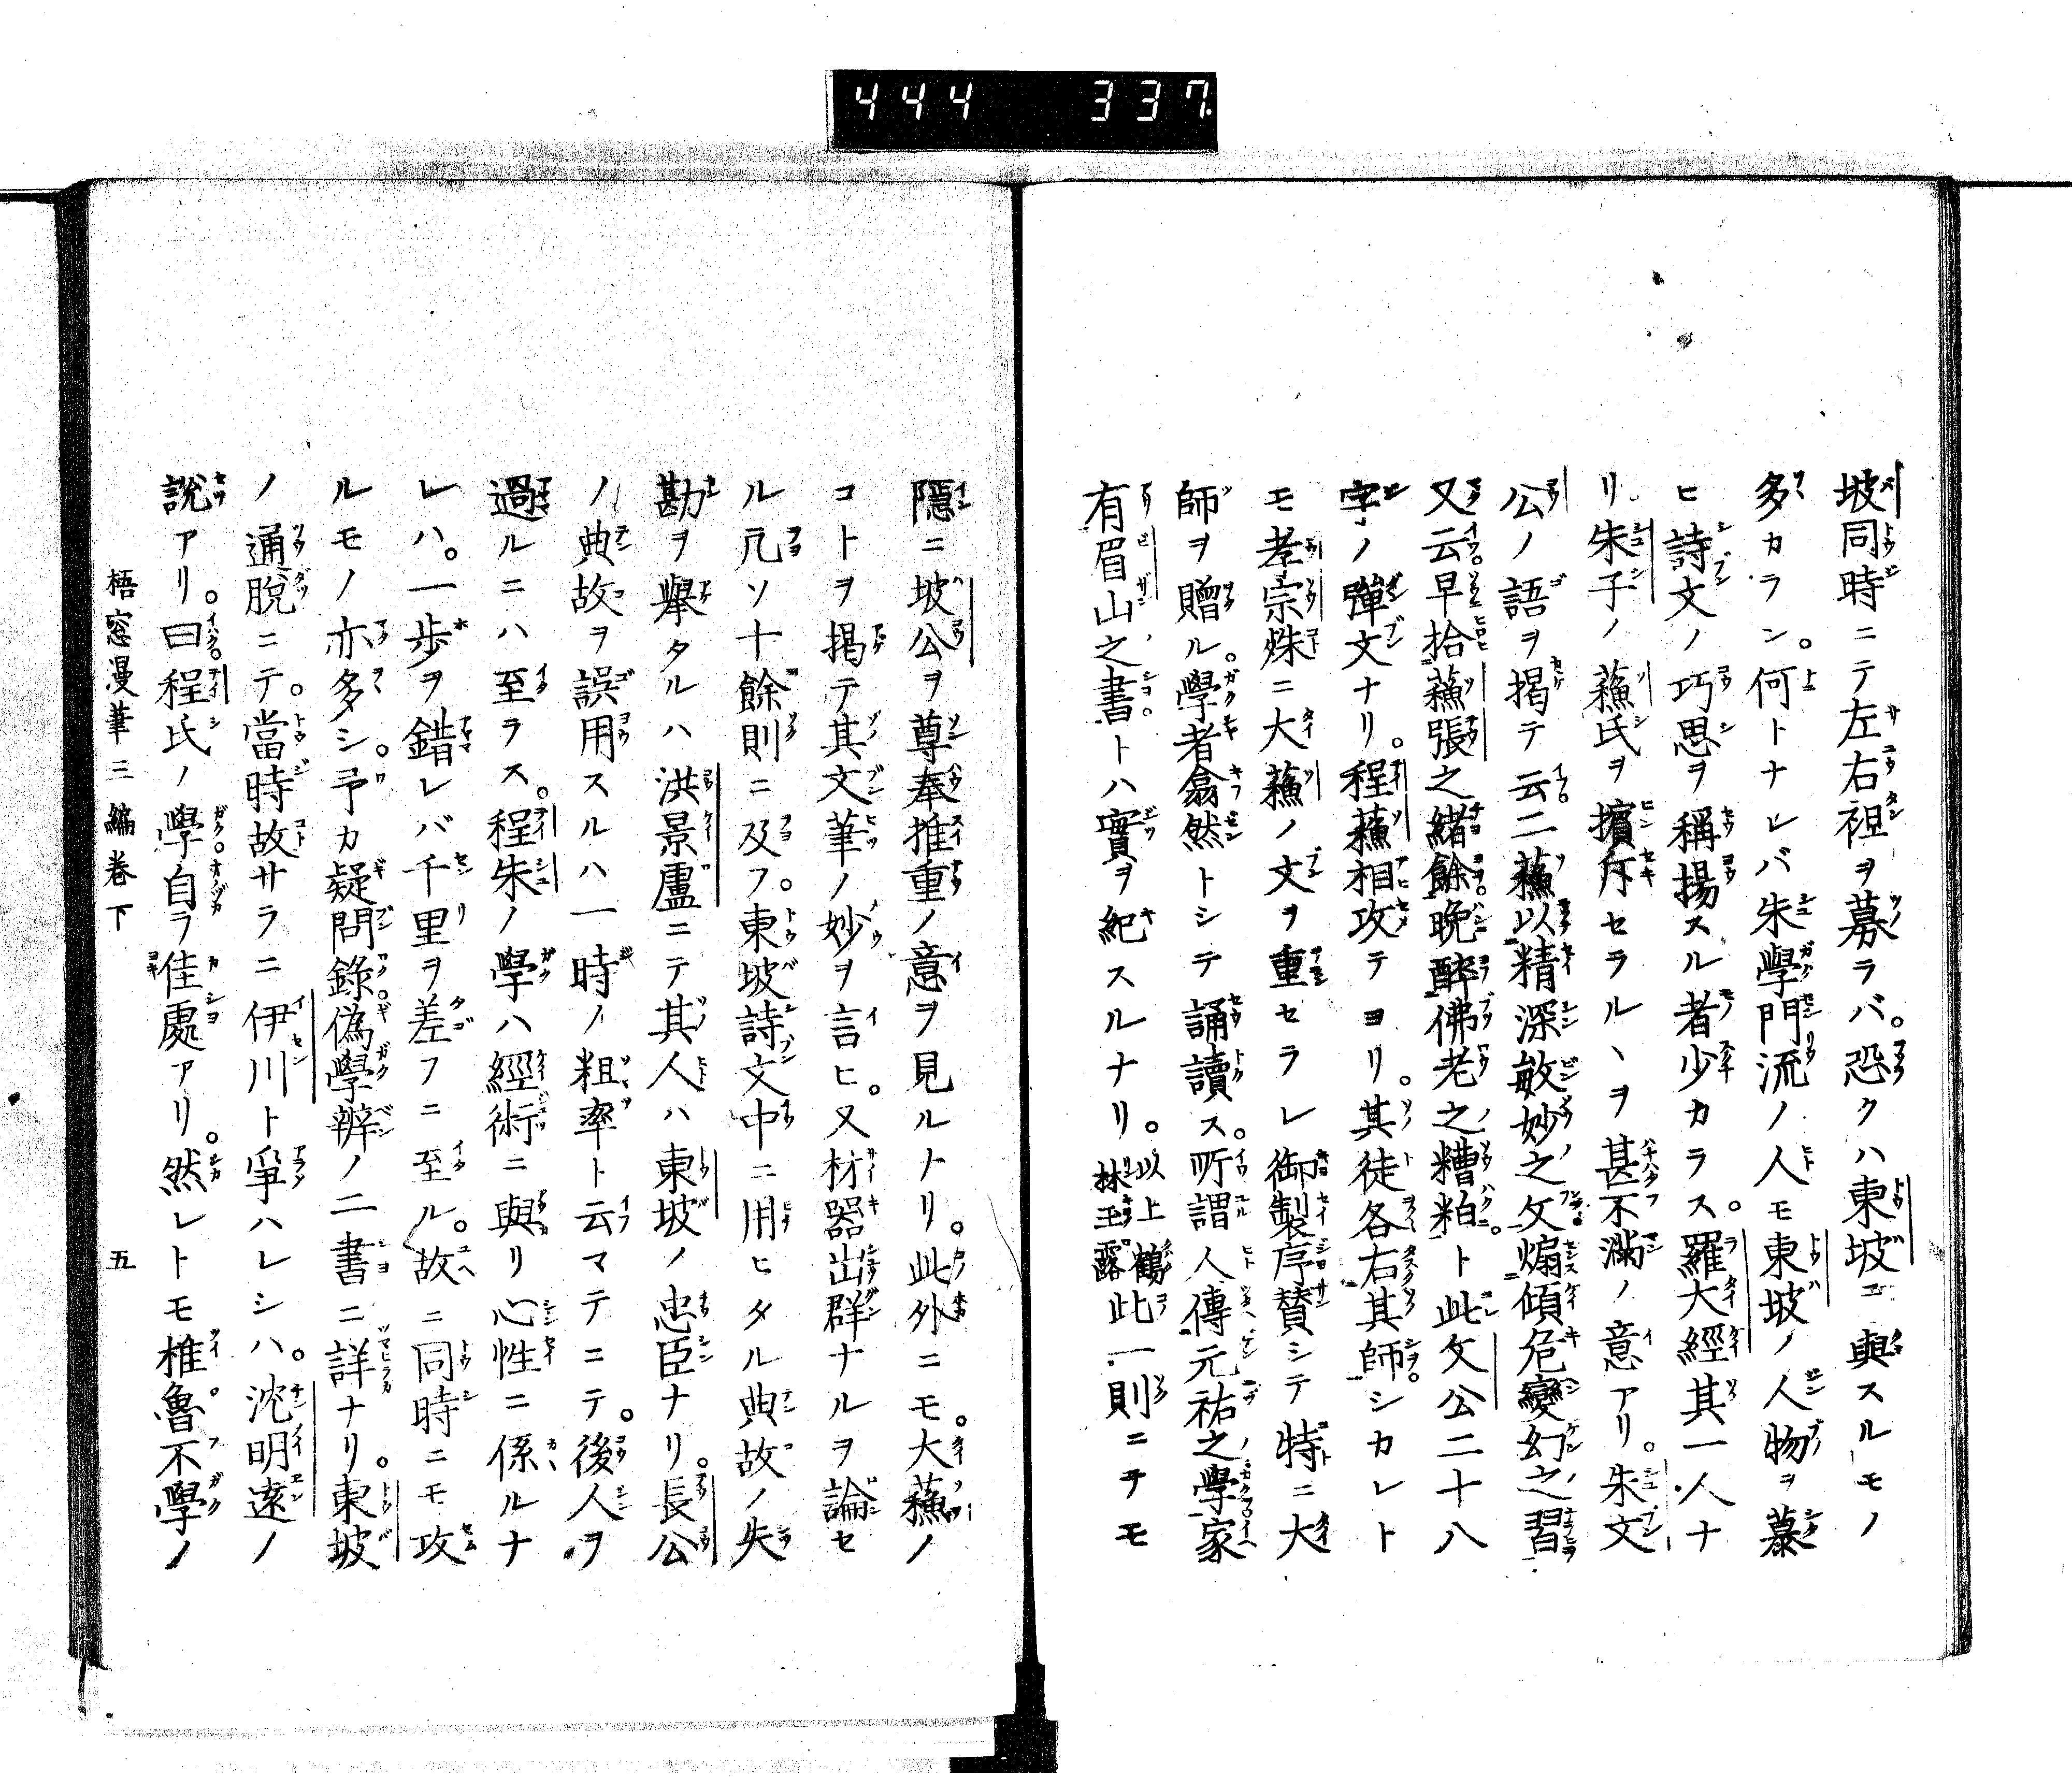 444 337
坡同時ニテ左右袒ヲ募ラバ。恐クハ東坡ニ與スルモノ
多カラン。何トナレバ朱學門流ノ人モ東坡ノ人物ヲ慕
ヒ詩文ノ巧思ヲ稱揚スル者少カラス。羅大經其一人ナ
リ朱子ノ蘓氏ヲ擯斥セラルヽヲ甚不滿ノ意アリ。朱文
公ノ語ヲ掲テ云二蘓以精深敏妙之文煽傾危變幻之習
又云。早拾蘓張之緒餘晩醉佛老之糟粕ト此文公二十八
字ノ彈文ナリ。程蘓相攻テヨリ。其徒各右其師。シカレト
モ孝宗殊ニ大蘓ノ文ヲ重セラレ御製序賛シテ特ニ大
師ヲ贈ル。學者翕然トシテ誦讀ス。所謂人傳元祐之學家
有眉山之書。トハ實ヲ紀スルナリ。以上鶴林玉露此一則ニテモ
隱ニ坡公ヲ尊奉推重ノ意ヲ見ルナリ。此外ニモ。大蘓ノ
コトヲ掲テ其文筆ノ妙ヲ言ヒ。又材器出群ナルヲ論セ
ル凡ソ十餘則ニ及フ。東坡詩文中ニ用ヒタル典故ノ失
勘ヲ舉タルハ洪景盧ニテ其人ハ東坡ノ忠臣ナリ。長公
ノ典故ヲ誤用スルハ一時ノ粗率ト云マテニテ。後人ヲ
過ルニハ至ラス。程朱ノ學ハ經術ニ與リ心性ニ係ルナ
レハ。一歩ヲ錯レバ千里ヲ差フニ至ル。故ニ同時ニモ攻
ルモノ亦多シ。予カ疑問錄。偽學辨ノ二書ニ詳ナリ。東坡
ノ通脫ニテ。當時故サラニ伊川ト爭ハレシハ。沈明遠ノ
說アリ。曰程氏ノ學自ラ佳處アリ。然レトモ椎魯不學ノ
梧窓漫筆三編卷下 五